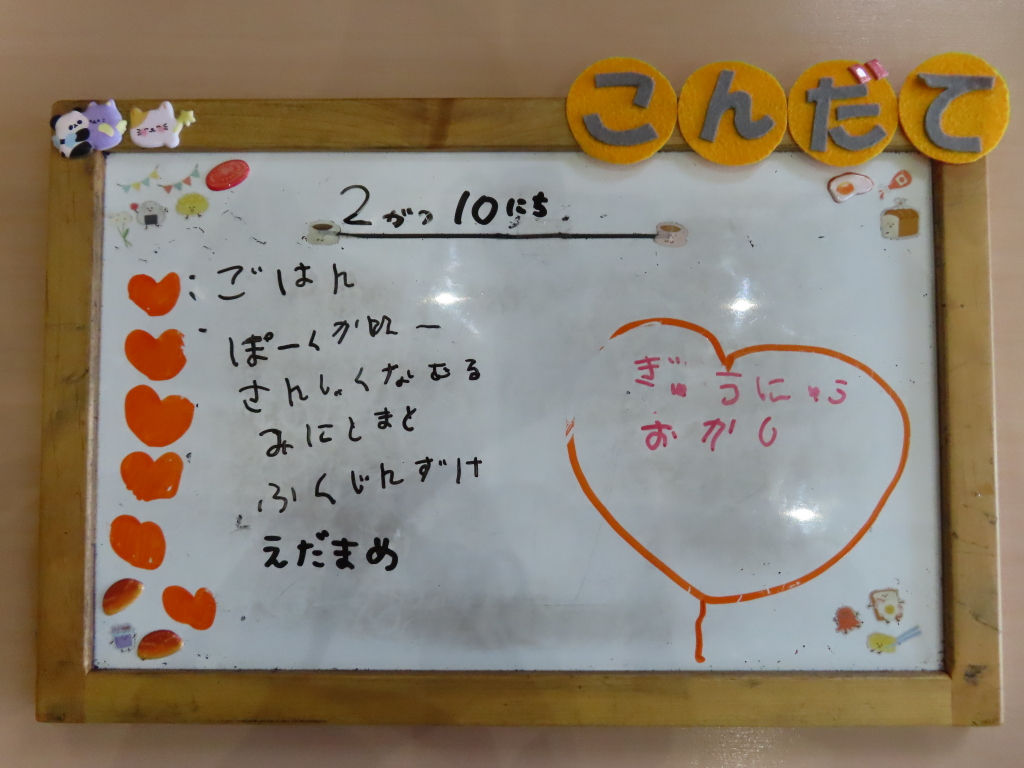 こんだて
2がつ10にち
：ごはん
ぽーくかれー
さんしゃくなむる
みにとまと
ふくじんずけ
えだまめ
ぎゅうにゅう
おかし